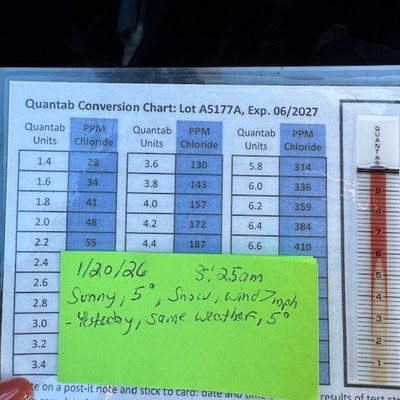 Quantab Conversion Chart: Lot A5177A, Exp. 06/2027
Quantab Units PPM Chloride Quantab Units PPM Chloride Quantab Units PPM Chloride
1.4 28 3.6 130 5.8 314
1.6 34 3.8 143 6.0 336
1.8 41 4.0 157 6.2 359
2.0 48 4.2 172 6.4 384
2.2 55 4.4 187 6.6 410
2.4
2.6
2.8
3.0
3.2
3.4
1/20/26 8:25am
Sunny, 5°, Snow, wind 7mph
- Yesterday, same weather, 5°
on a post-it note and stick to card: date and time
results of test
QUANTAB
9
8
7
6
5
4
3
2
1